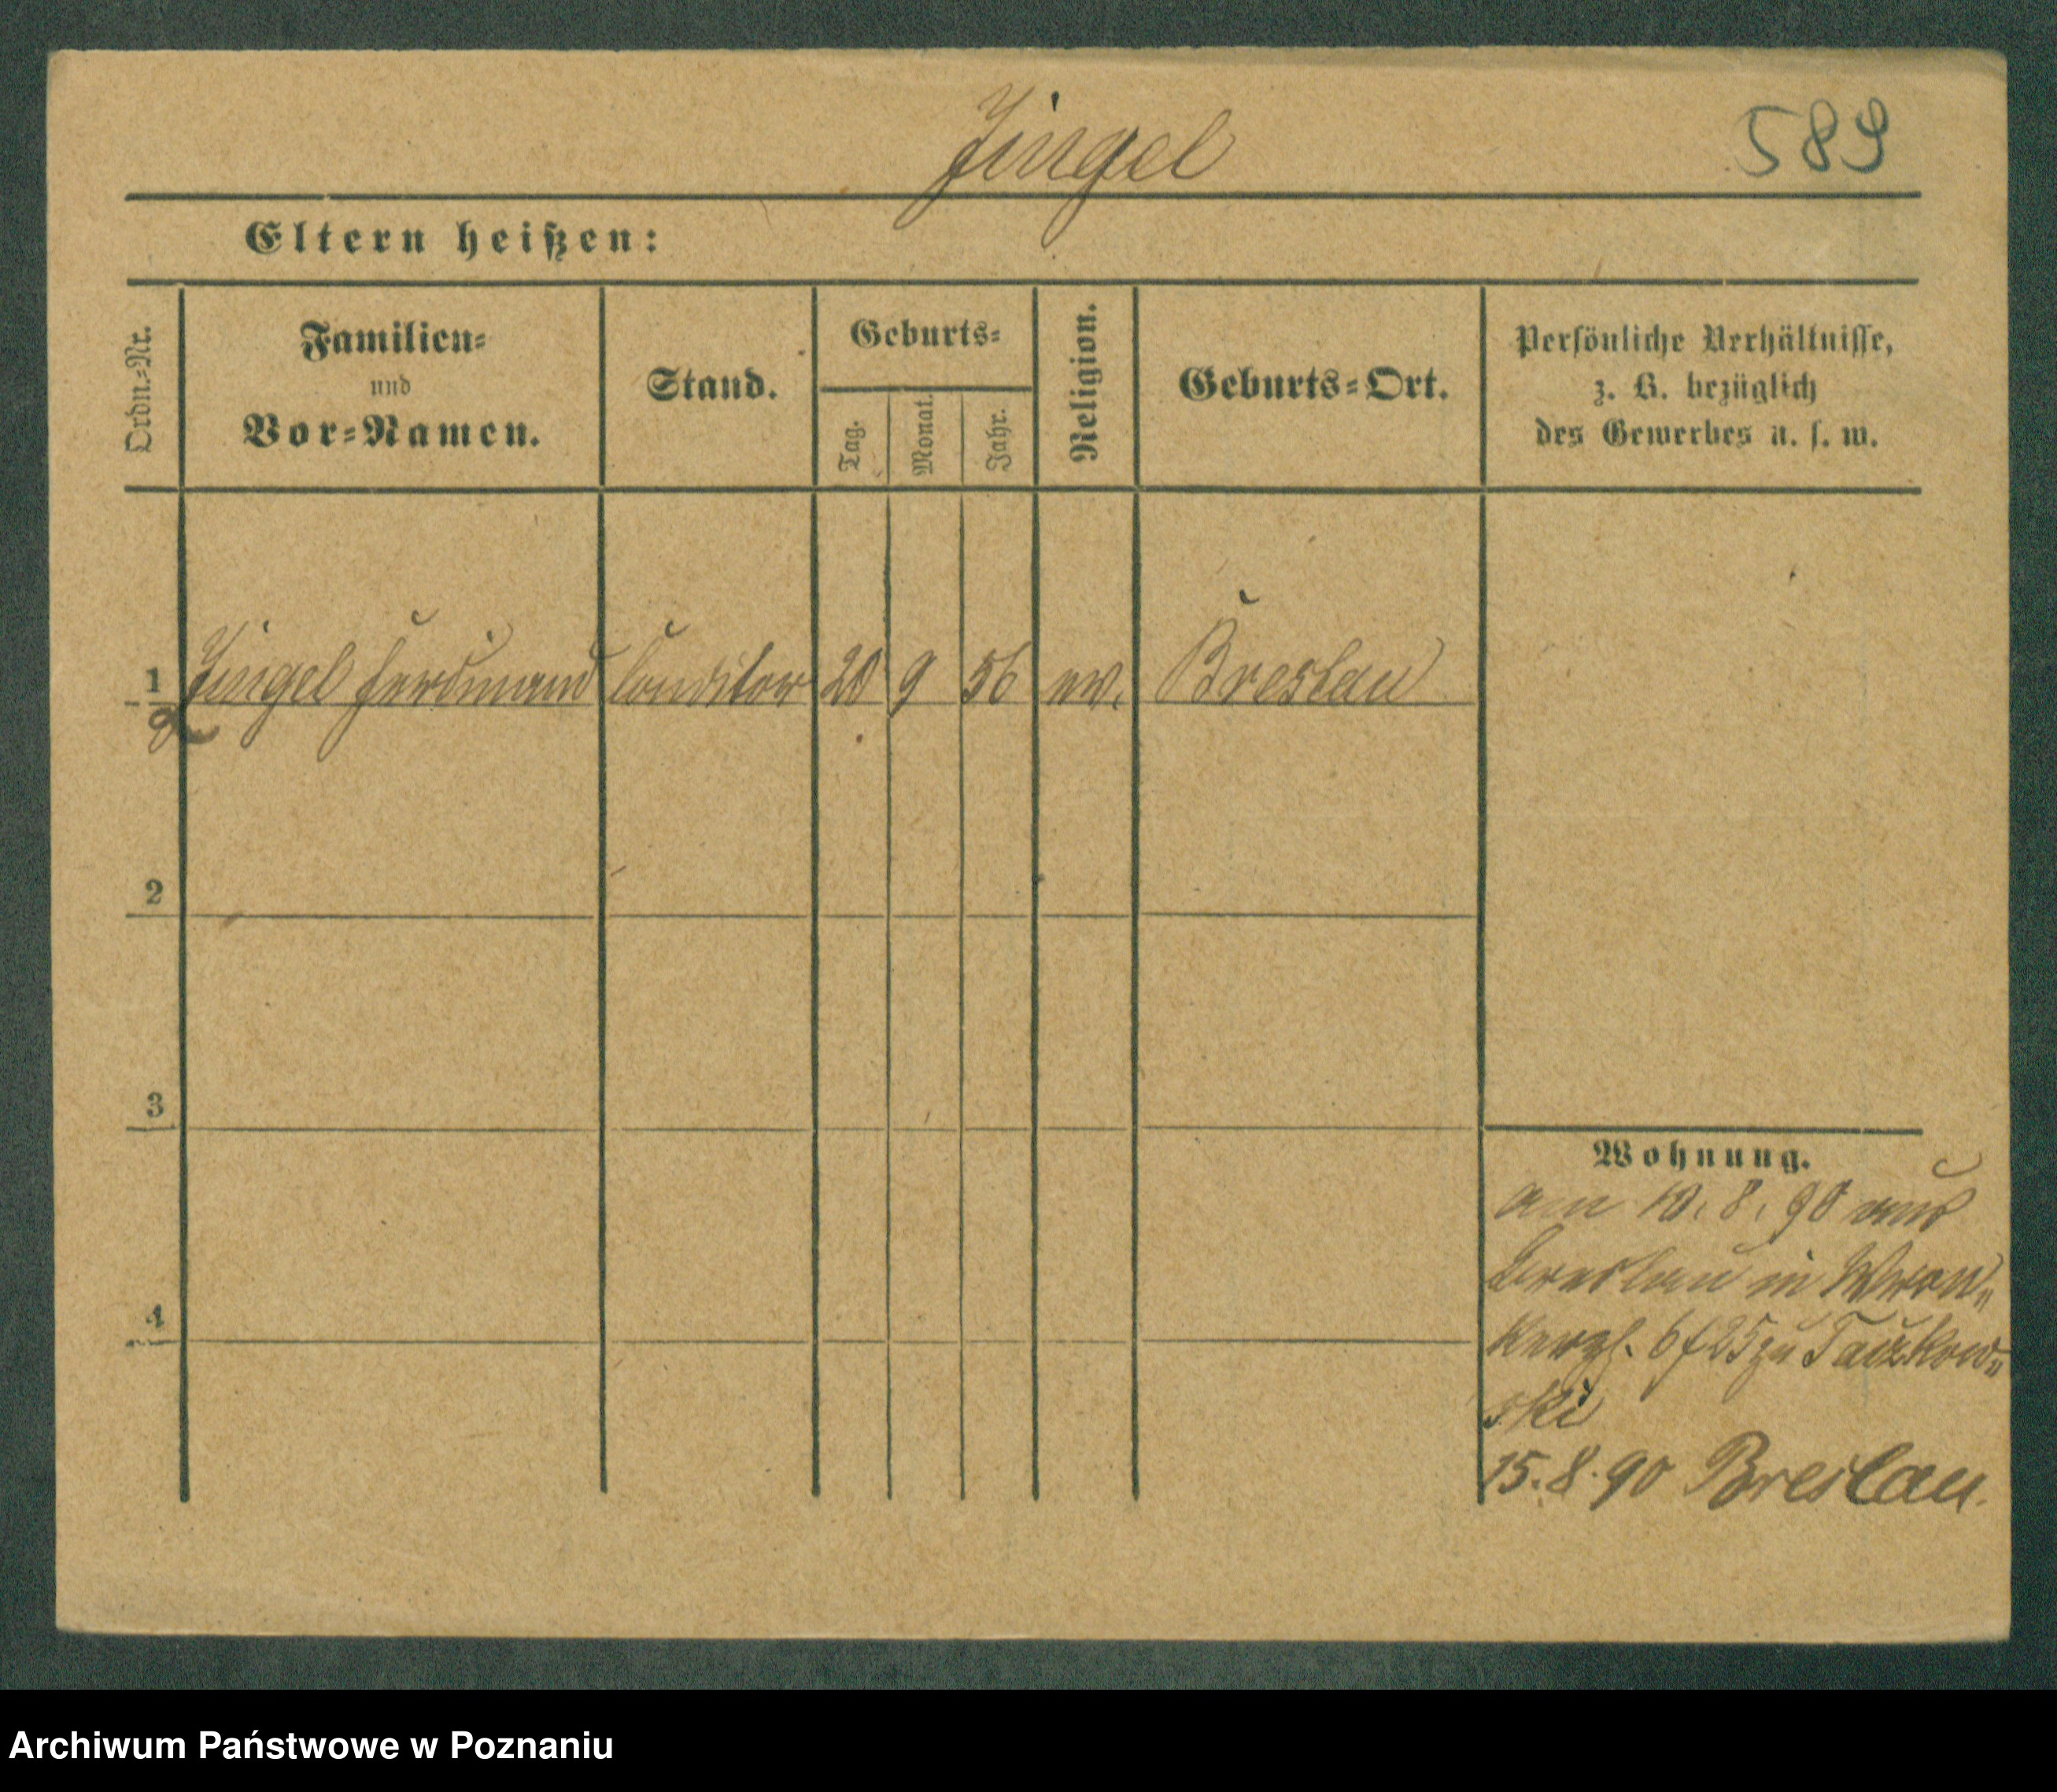 Jingel
589
Eltern heißen:
Ordn.-Nr.
Familien-
und
Vor-Namen.
Stand.
Geburts-
Tag.
Monat.
Jahr.
Religion.
Geburts-Ort.
Persönliche Verhältnisse,
z. B. bezüglich
des Gewerbes u. s. w.
1 Jingel Ferdinand Conditor 20 9 56 ev. Breslau
2
3
4
Wohnung.
am 10. 8. 90 aus
Breslau in Wron-
kerpl. 6 f 25 zu Taczkow-
ski
15. 8. 90 Breslau.
Archiwum Państwowe w Poznaniu